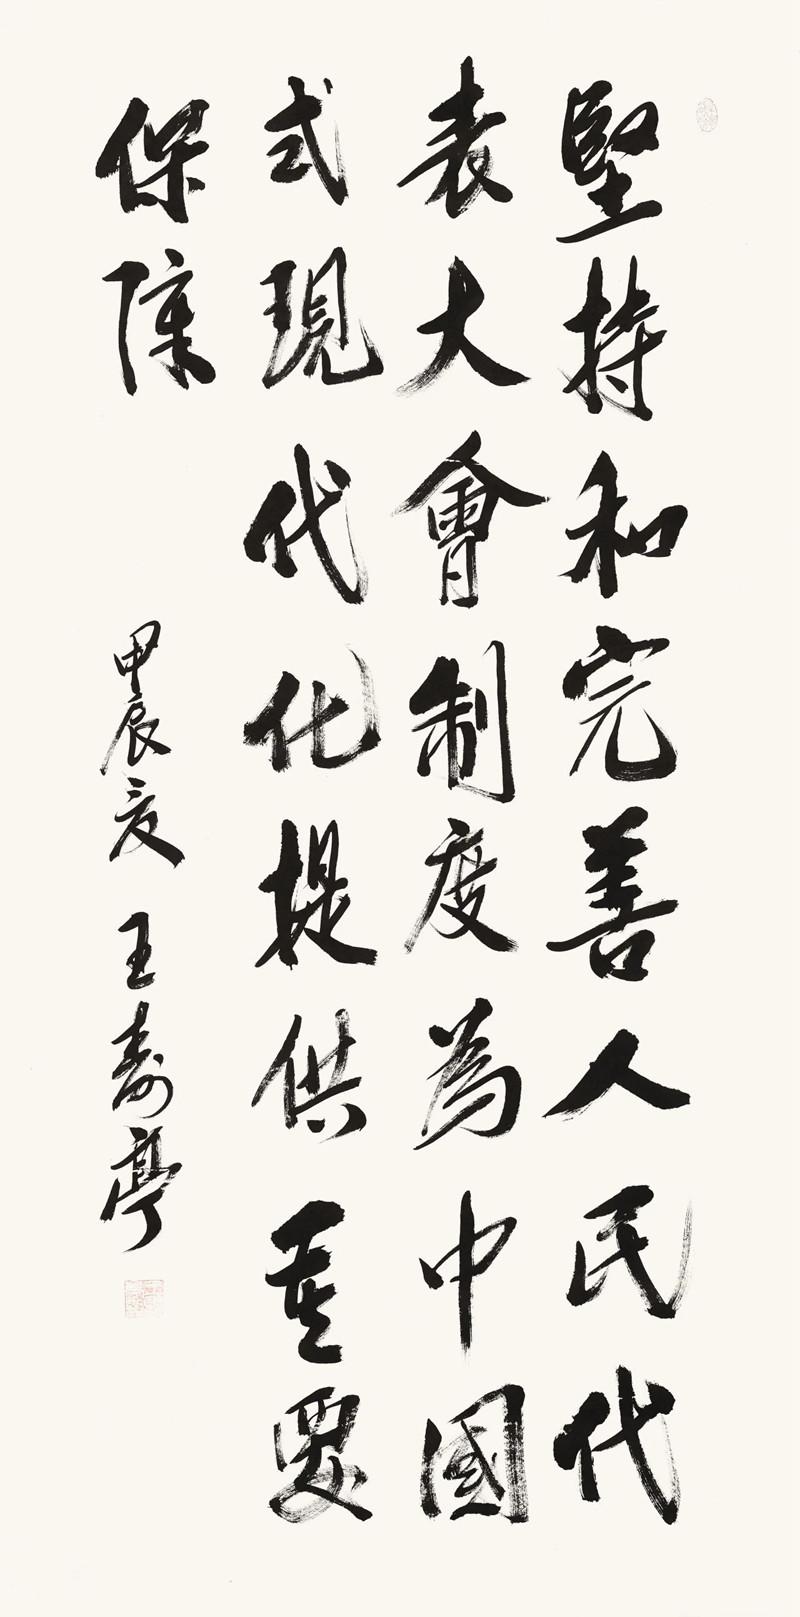 堅持和完善人民代
表大會制度為中國
式現代化提供重要
保障
甲辰夏 王壽亭